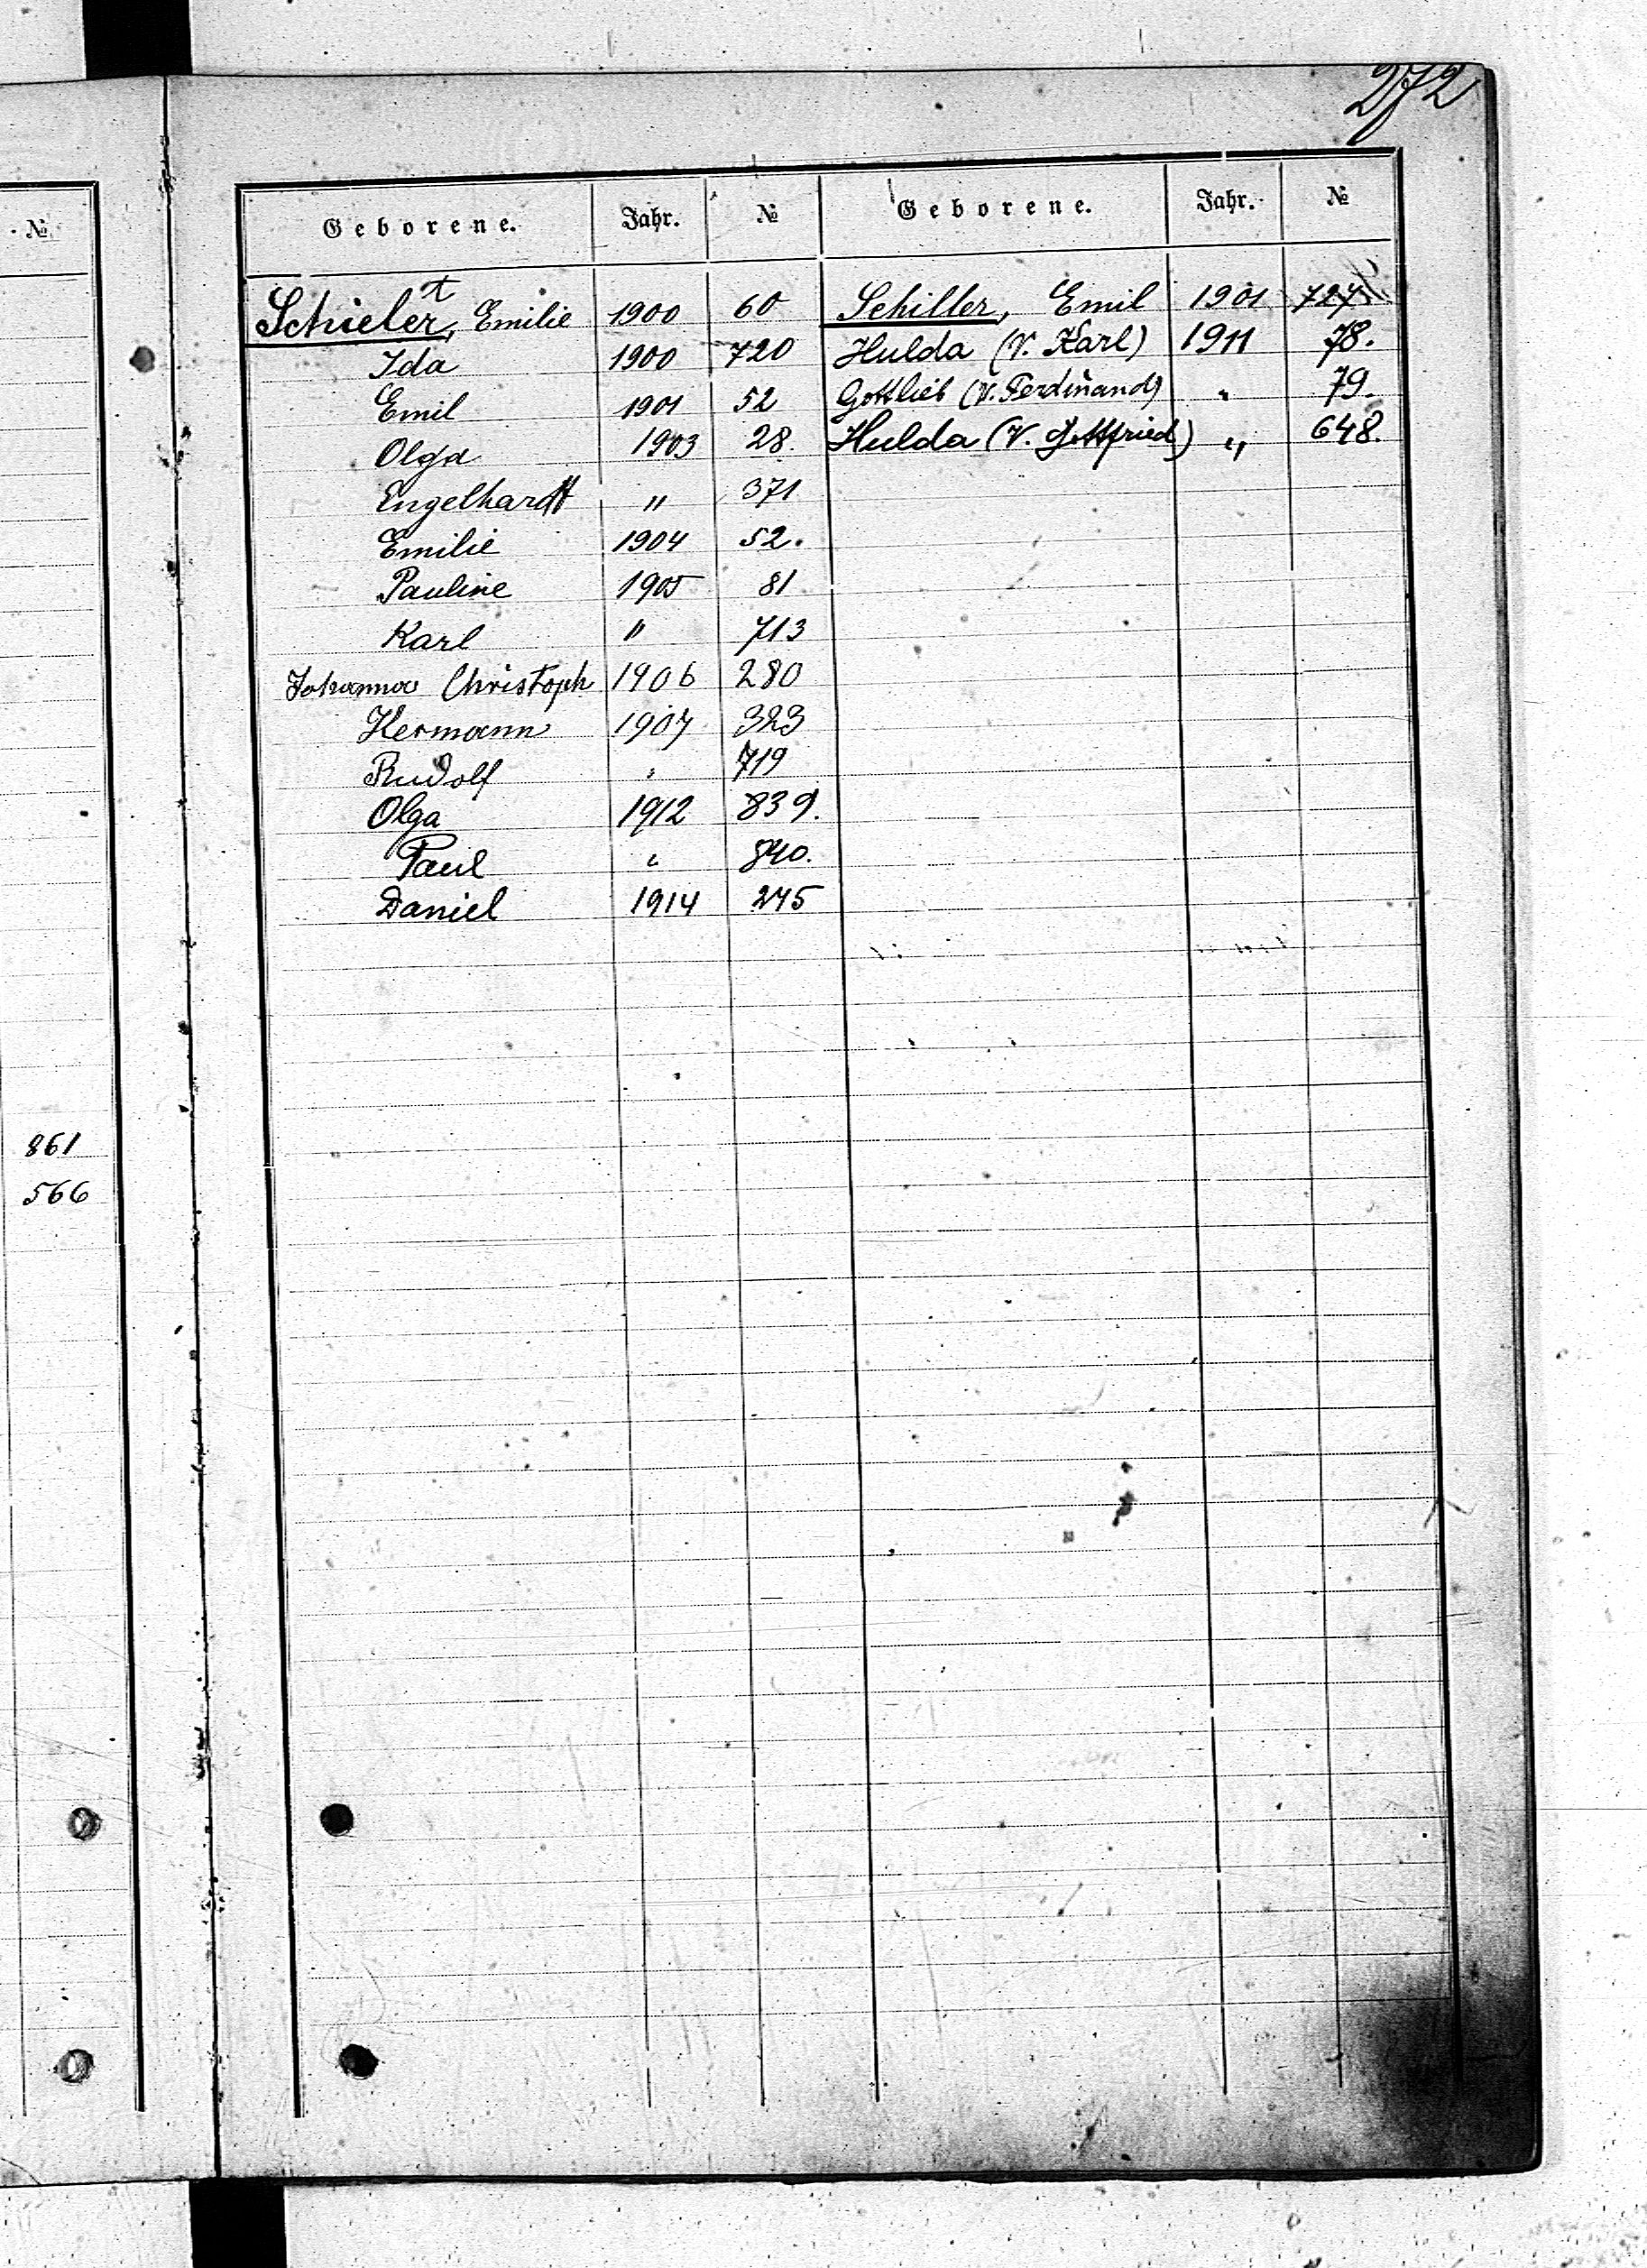 272
№
Geborene. Jahr. № Geborene. Jahr. №
Schielert, Emilie 1900 60 Schiller, Emil 1901
Ida 1900 720 Hulda (V. Karl) 1911 78.
Emil 1901 52 Gottlieb (V. Ferdinand) " 79.
Olga 1903 28. Hulda (V. Gottfried) " 648.
Engelhardt " 371
Emilie 1904 52.
Pauline 1905 81
Karl " 713
Johanna Christoph 1906 280
Hermann 1907 323
Rudolf " 719
Olga 1912 839.
Paul " 840.
Daniel 1914 245
861
566